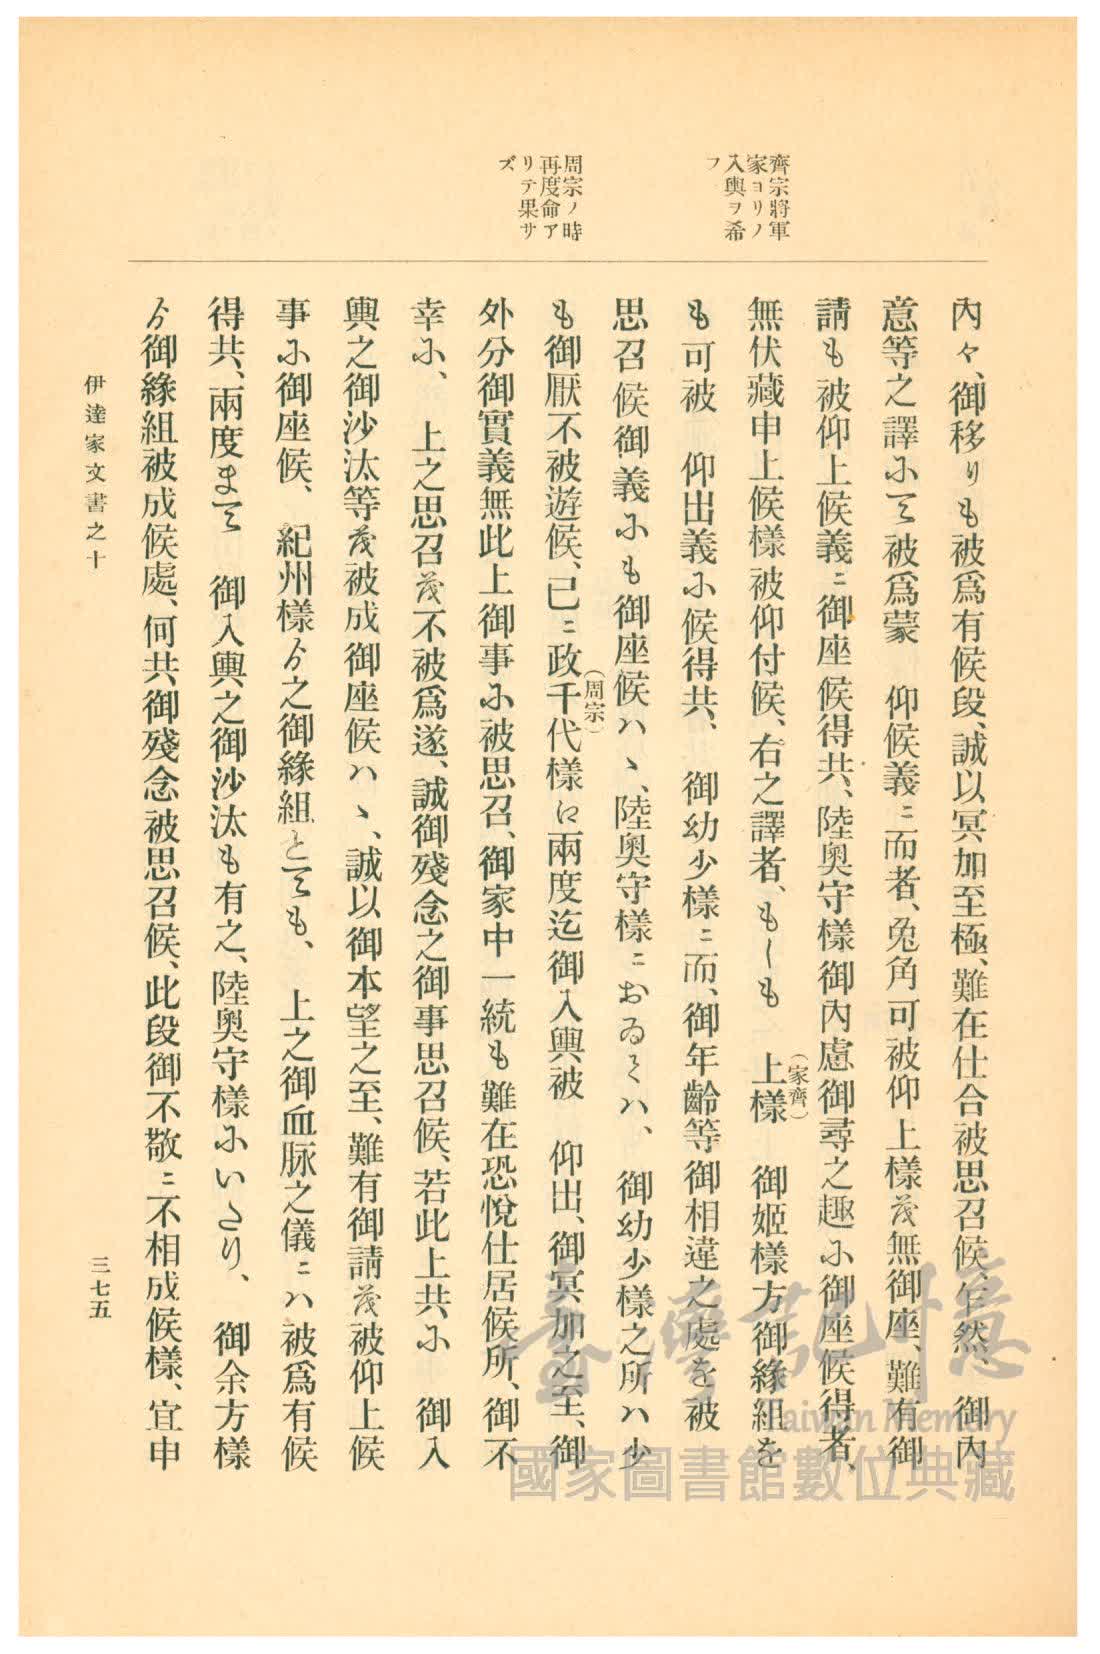 齊宗將軍
家ヨリノ
入輿ヲ希
フ
周宗ノ時
再度命ア
リテ果サ
ズ
內々、御移りも被爲有候段、誠以冥加至極、難在仕合被思召候、乍然、　御內
意等之譯ニて被爲蒙　仰候義ニ而者、兔角可被仰上樣茂無御座、難有御
請も被仰上候義ニ御座候得共、陸奧守樣御內慮御尋之趣ニ御座候得者、
無伏藏申上候樣被仰付候、右之譯者、もしも　上樣　御姬樣方御緣組を
（家齊）
も可被　仰出義ニ候得共、　御幼少樣ニ而、御年齡等御相違之處を被
思召候御義ニも御座候ハヽ、陸奧守樣ニおゐてハ、　御幼少樣之所ハ少
も御厭不被遊候、已ニ政千代樣江兩度迄御入輿被　仰出、御冥加之至、御
（周宗）
外分御實義無此上御事ニ被思召、御家中一統も難在恐悅仕居候所、御不
幸ニ、　上之思召茂不被爲遂、誠御殘念之御事思召候、若此上共ニ　御入
輿之御沙汰等茂被成御座候ハヽ、誠以御本望之至、難有御請茂被仰上候
事ニ御座候、　紀州樣ゟ之御緣組とても、　上之御血脉之儀ニハ被爲有候
得共、兩度まて　御入輿之御沙汰も有之、陸奧守樣ニいたり、　御余方樣
ゟ御緣組被成候處、何共御殘念被思召候、此段御不敬ニ不相成候樣、宜申
伊達家文書之十
三七五
臺灣記憶
Taiwan Memory
國家圖書館數位典藏